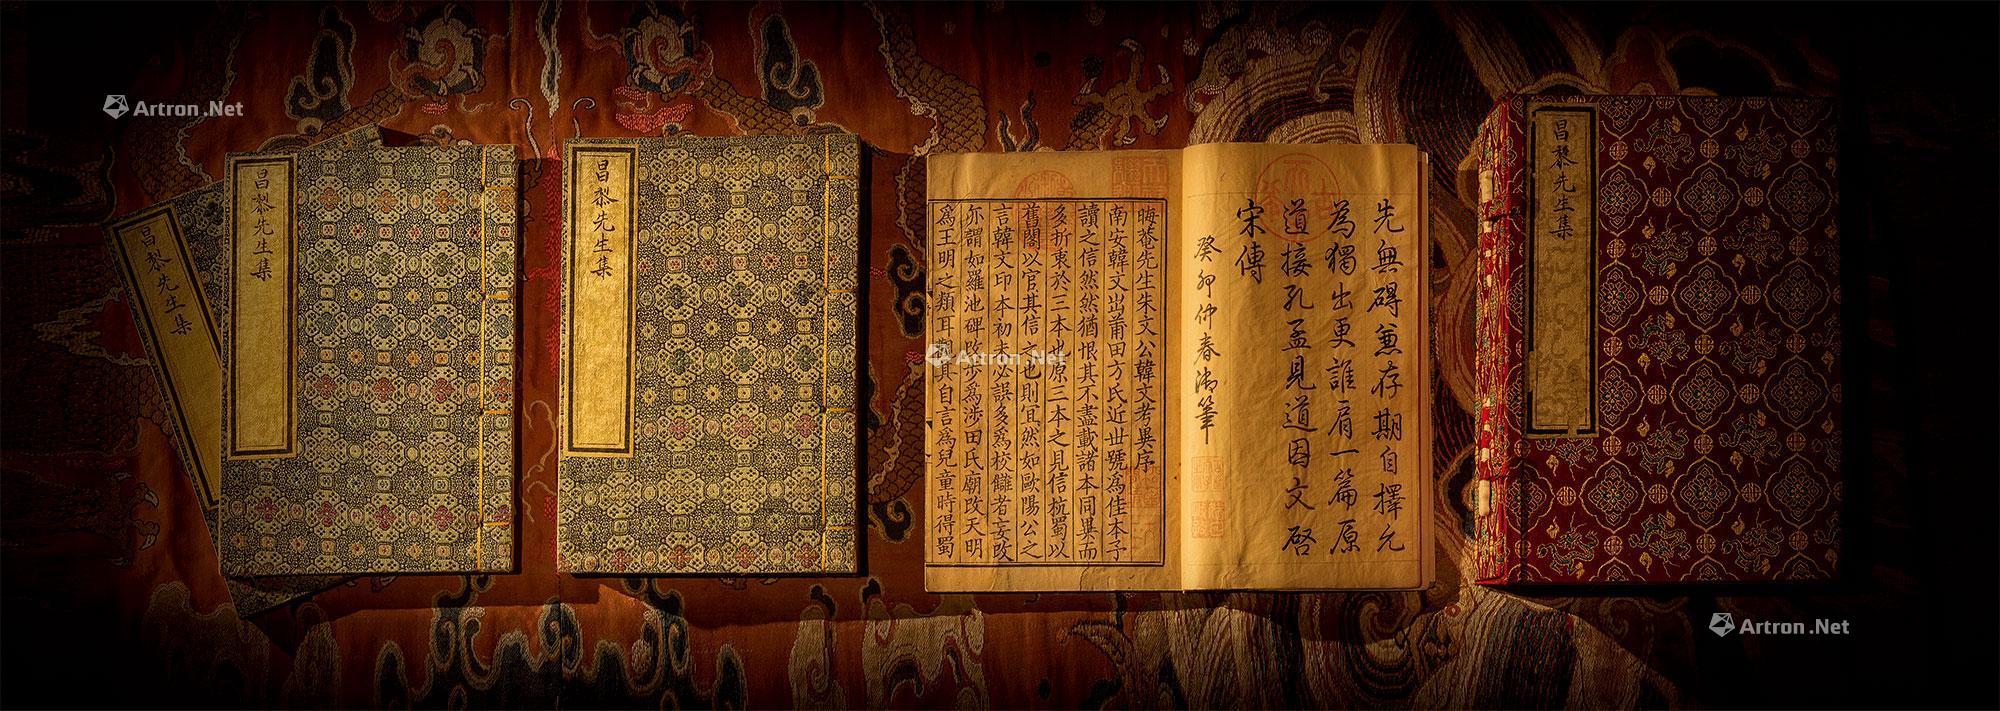 Artron.Net
昌黎先生集
昌黎先生集
昌黎先生集
先無碍兼存期自擇允
為獨出更誰肩一篇原
道接孔孟見道因文啓
宋傳
癸卯仲春御筆
晦菴先生朱文公韓文考異序
南安韓文出莆田方氏近世號爲佳本予
讀之信然然猶恨其不盡載諸本同異而
多折衷於三本也原三本之見信杭蜀以
舊閣以官其信之也則宜然如歐陽公之
言韓文印本初未必誤多爲校讎者妄改
亦謂如羅池碑改步爲涉田氏廟改天明
爲王明之類耳觀其自言爲兒童時得蜀
Artron.Net
昌黎先生集
Artron.Net